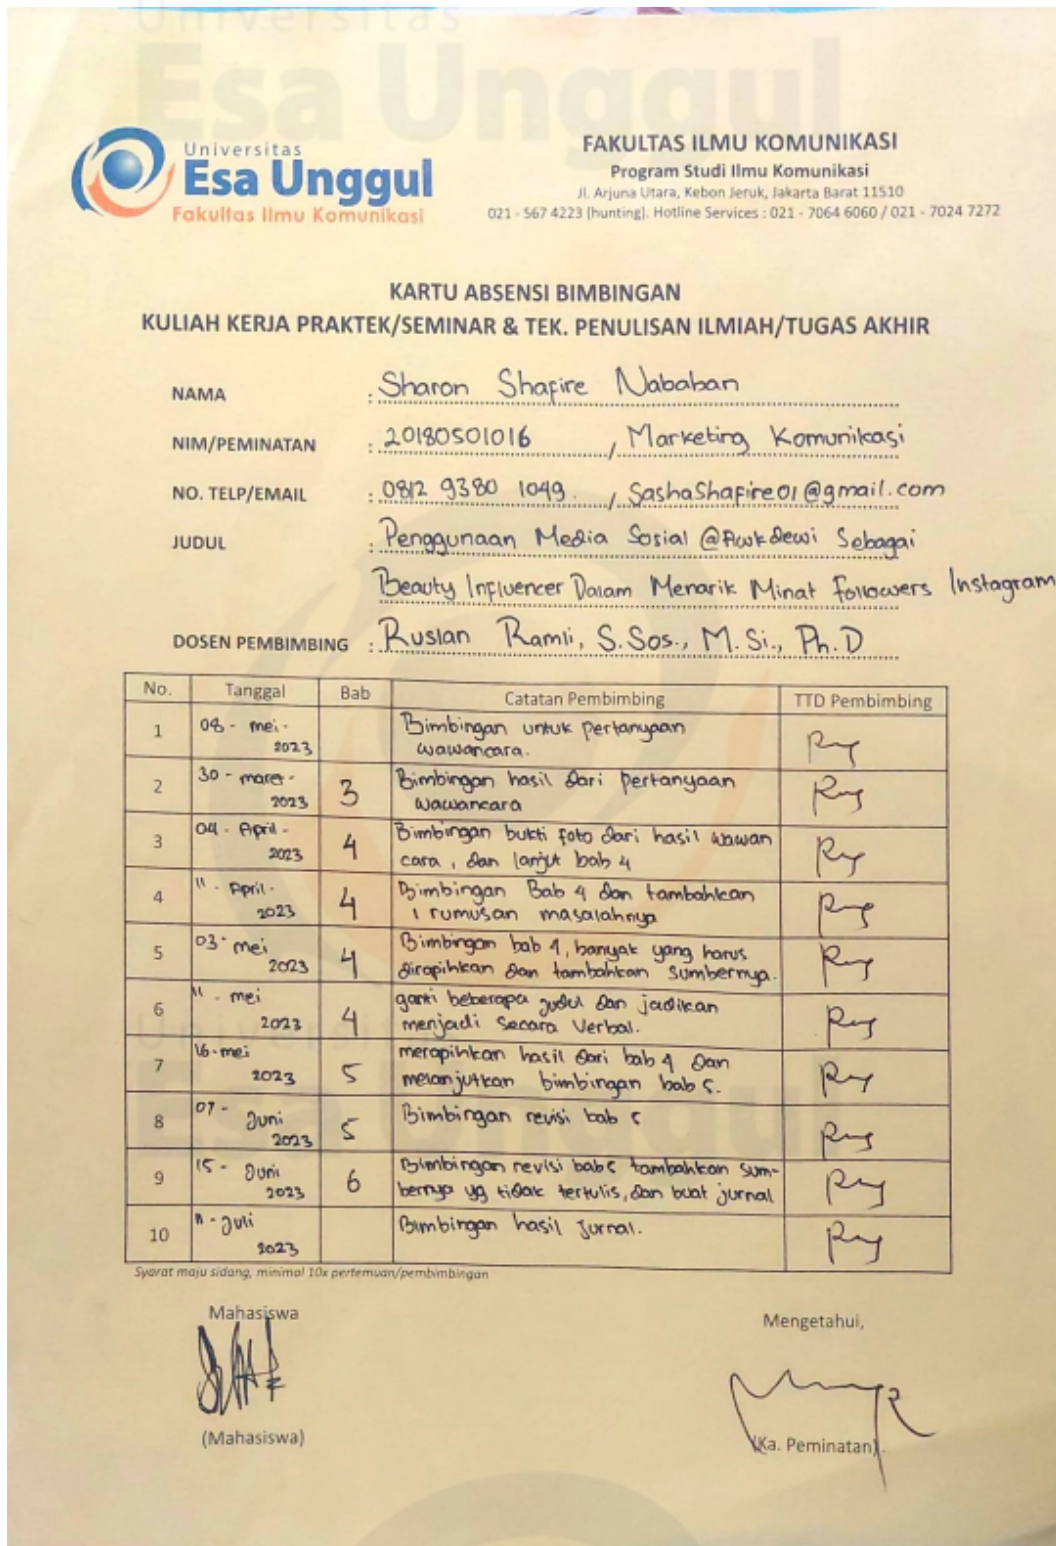 Universitas
Esa Unggul
Universitas
Esa Unggul
Fakultas Ilmu Komunikasi
FAKULTAS ILMU KOMUNIKASI
Program Studi Ilmu Komunikasi
Jl. Arjuna Utara, Kebon Jeruk, Jakarta Barat 11510
021 - 567 4223 (hunting). Hotline Services : 021 - 7064 6060 / 021 - 7024 7272
KARTU ABSENSI BIMBINGAN
KULIAH KERJA PRAKTEK/SEMINAR & TEK. PENULISAN ILMIAH/TUGAS AKHIR
NAMA : Sharon Shafire Nababan
NIM/PEMINATAN : 20180501016 / Marketing Komunikasi
NO. TELP/EMAIL : 0812 9380 1049. / SashaShafire01@gmail.com
JUDUL : Penggunaan Media Sosial @Awkdewi Sebagai
Beauty Influencer Dalam Menarik Minat Followers Instagram
DOSEN PEMBIMBING : Ruslan Ramli, S.Sos., M.Si., Ph.D
No. Tanggal Bab Catatan Pembimbing TTD Pembimbing
1 08 - mei - Bimbingan untuk pertanyaan
2023 wawancara.
2 30 - maret - 3 Bimbingan hasil dari pertanyaan
2023 wawancara
3 04 - April - 4 Bimbingan bukti foto dari hasil wawan
2023 cara, dan lanjut bab 4
4 11 - April - 4 Bimbingan Bab 4 dan tambahkan
2023 1 rumusan masalahnya
5 03 - mei 4 Bimbingan bab 4, banyak yang harus
2023 dirapihkan dan tambahkan sumbernya.
6 11 - mei 4 ganti beberapa judul dan jadikan
2023 menjadi secara Verbal.
7 16 - mei 5 merapihkan hasil dari bab 4 dan
2023 melanjutkan bimbingan bab 5.
8 07 - Juni 5 Bimbingan revisi bab 5
2023
9 15 - Juni 6 Bimbingan revisi bab 5 tambahkan sum-
2023 bernya yg tidak tertulis, dan buat jurnal
10 11 - Juli Bimbingan hasil Jurnal.
2023
Syarat maju sidang, minimal 10x pertemuan/pembimbingan
Mahasiswa
Mengetahui,
(Mahasiswa)
(Ka. Peminatan).